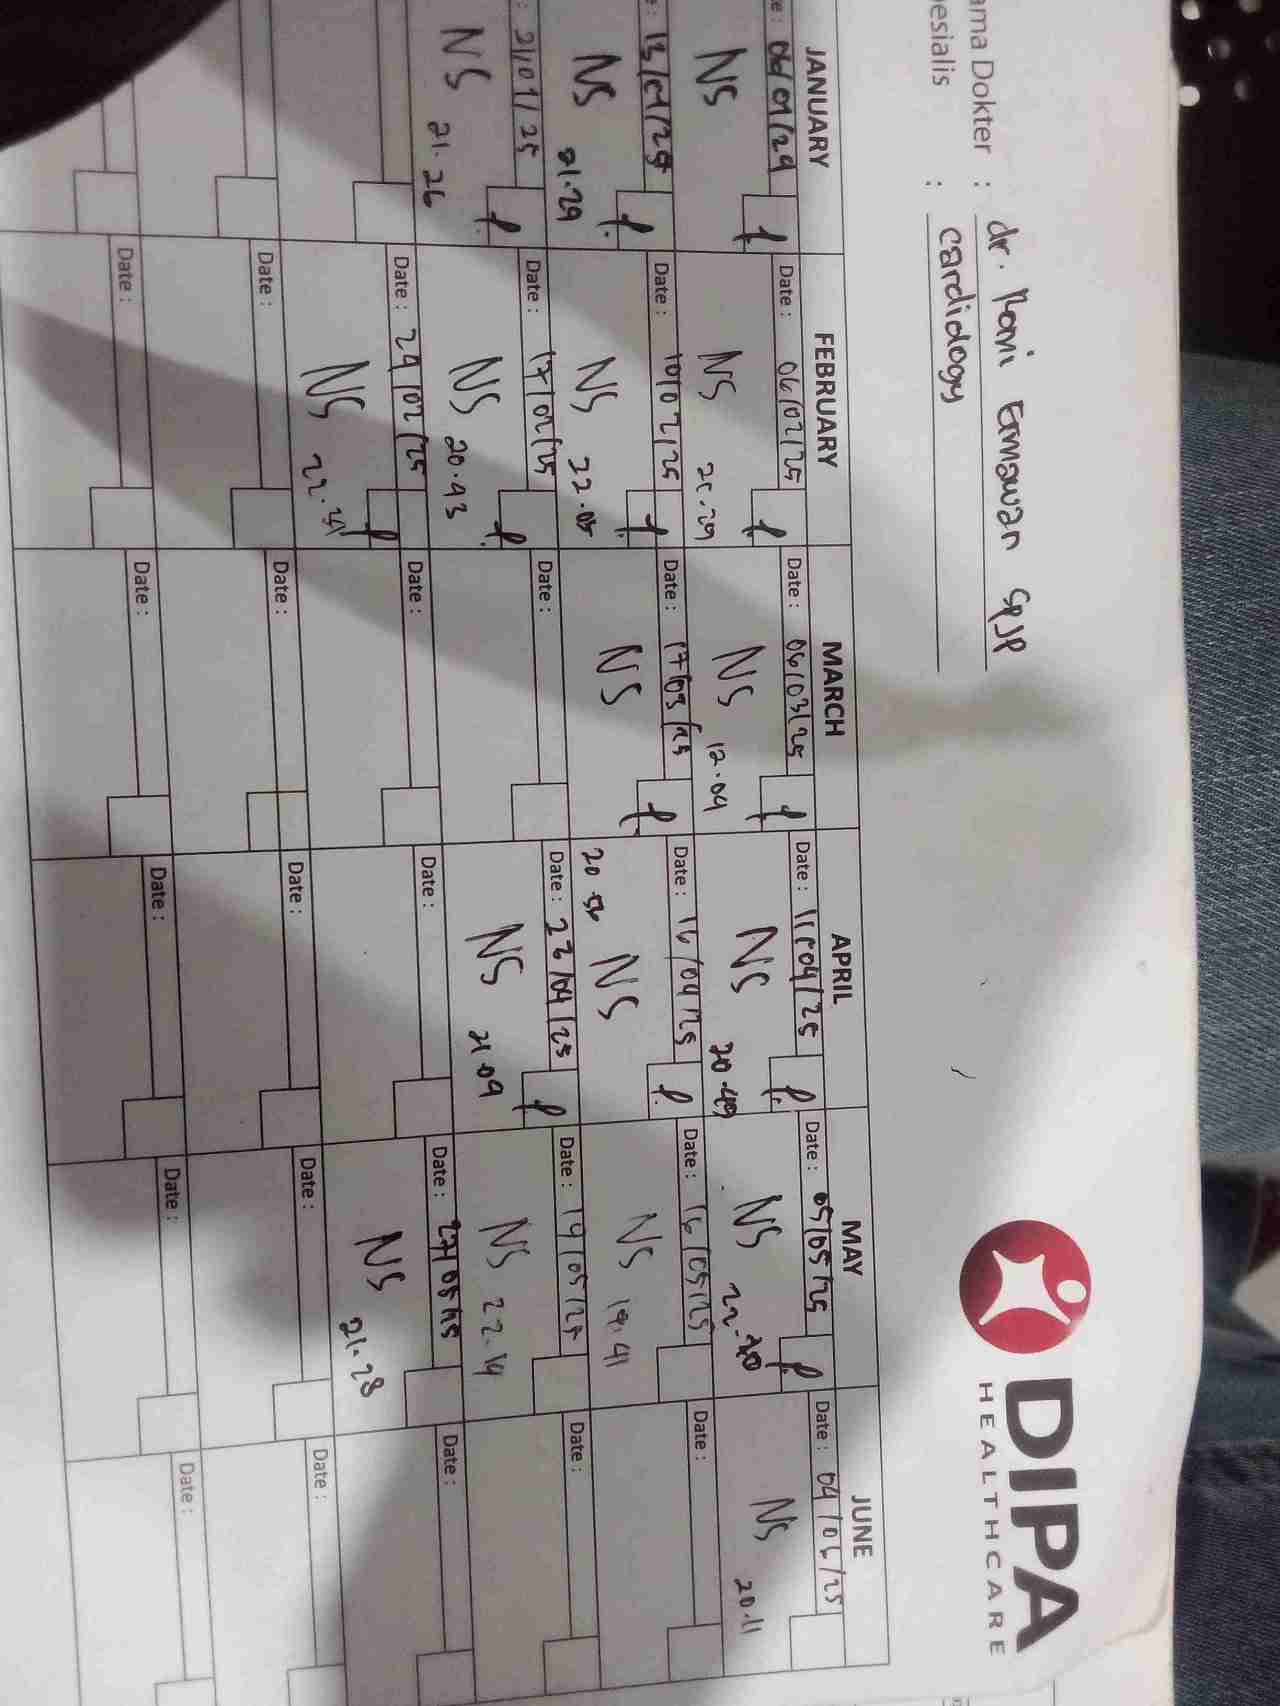 DIPA
HEALTHCARE
ama Dokter : dr. Romi Ermawan SPJP
esialis : Cardiology
JANUARY FEBRUARY MARCH APRIL MAY JUNE
e : 06/01/29 Date : 06/02/25 Date : 06/03/25 Date : 11/04/25 Date : 05/05/25 Date : 04/06/25
NS NS 21.29 NS 12.04 NS 20.49 NS 22. NS 20.11
e : 13/01/25 Date : 10/02/25 Date : 17/03/25 Date : 16/04/25 Date : 16/05/25 Date :
NS 21.29 NS 22.05 NS 20 NS NS 19.41
: 21/01/25 Date : 17/02/25 Date : Date : 23/04/25 Date : 19/05/25 Date :
NS 21.26 NS 20.43 NS 21.09 NS 22.14
Date : 24/02/25 Date : Date : Date : 27/05/25 Date :
NS 22. NS 21.28
Date : Date : Date : Date : Date :
Date : Date : Date : Date : Date :